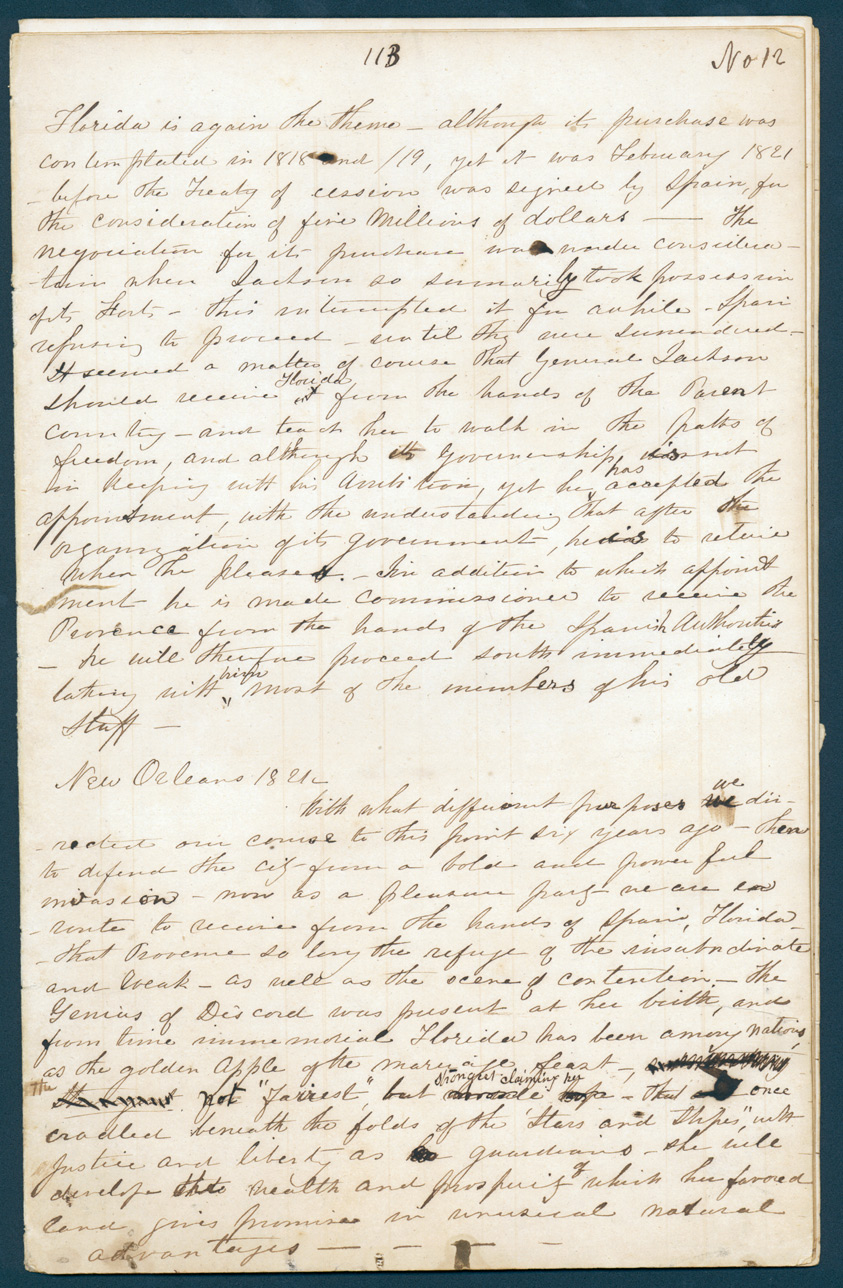 113 No 12
Florida is again the theme – although its purchase was
contemplated in 1818 and /19, yet it was February 1821
– before the Treaty of cession was signed by Spain, for
the consideration of five Millions of dollars — The
negociation for its purchase was under considera-
tion when Jackson so summarily took possession
of its Forts – this interrupted it for awhile – Spain
refusing to proceed – until they were surrendered –
It seemed a matter of course that General Jackson
should receive Florida from the hands of the Parent
country – and teach her to walk in the paths of
freedom, and although its Governorship, is not
in keeping with his Ambition, yet he has accepted the
appointment, with the understanding that after the
organization of its government, he is to retire
when he pleases. – In addition to which appoint
ment he is made commissioner to receive the
Province from the hands of the Spanish Authorities
– he will therefore proceed south immediately
taking with him most of the members of his old
Staff —
New Orleans 1821
With what different purposes we di-
– rected our course to this point six years ago – then
to defend the city from a bold and powerful
invasion – now as a pleasure party we are en
– route to receive from the hands of Spain, Florida
– that Province so long the refuge of the insubordinate
and weak – as well as the scene of contention. – The
Genius of Discord was present at her birth, and
from time immemorial Florida has been among nations
as the golden Apple of the marriage feast –,
the not "Fairest", but strongest claiming her – that once
cradled beneath the folds of the "Stars and Stripes", with
Justice and liberty as guardians – she will
develope the wealth and prosperity of which her favored
land gives promise in unusual natural
advantages — — — —